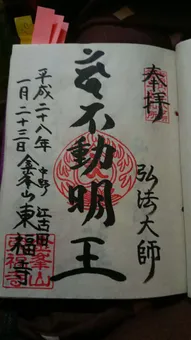 奉拝
弘法大師
不動明王
平成二十八年
中野 江古田
一月二十三日 金峯山 東福寺